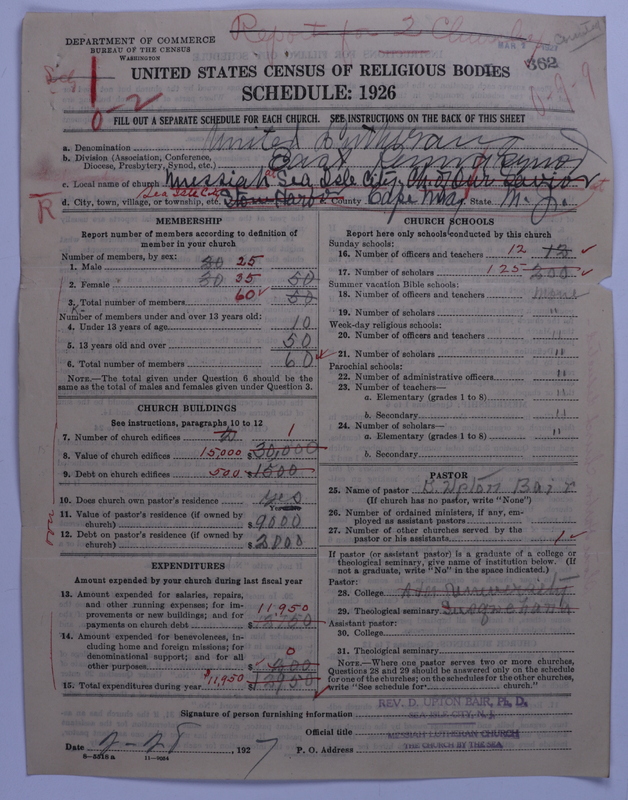 Report for 2 Churches
DEPARTMENT OF COMMERCE
BUREAU OF THE CENSUS
WASHINGTON
362
UNITED STATES CENSUS OF RELIGIOUS BODIES
SCHEDULE: 1926
0-2
FILL OUT A SEPARATE SCHEDULE FOR EACH CHURCH. SEE INSTRUCTIONS ON THE BACK OF THIS SHEET
a. Denomination United Lutheran
b. Division (Association, Conference, Diocese, Presbytery, Synod, etc.) East Penna Synod
c. Local name of church Messiah at Sea Isle City, Ch of Our Savior
d. City, town, village, or township, etc. Sea Isle City County Cape May State N. J.
MEMBERSHIP
Report number of members according to definition of
member in your church
Number of members, by sex:
1. Male 30 25
2. Female 30 35 50
3. Total number of members 60 50
Number of members under and over 13 years old:
4. Under 13 years of age 10
5. 13 years old and over 50
6. Total number of members 60
NOTE.—The total given under Question 6 should be the
same as the total of males and females given under Question 3.
CHURCH BUILDINGS
See instructions, paragraphs 10 to 12
7. Number of church edifices 2 1
8. Value of church edifices 15,000 $30,000
9. Debt on church edifices 500 $1500
10. Does church own pastor's residence yes
11. Value of pastor's residence (if owned by
church) $9000
12. Debt on pastor's residence (if owned by
church) $2000
EXPENDITURES
Amount expended by your church during last fiscal year
13. Amount expended for salaries, repairs,
and other running expenses; for im-
provements or new buildings; and for 11,950
payments on church debt $
14. Amount expended for benevolences, in-
cluding home and foreign missions; for
denominational support; and for all 0
other purposes 200
15. Total expenditures during year $11,950 $12950
CHURCH SCHOOLS
Report here only schools conducted by this church
Sunday schools:
16. Number of officers and teachers 12
17. Number of scholars 125 200
Summer vacation Bible schools:
18. Number of officers and teachers none
19. Number of scholars "
Week-day religious schools:
20. Number of officers and teachers "
21. Number of scholars "
Parochial schools:
22. Number of administrative officers "
23. Number of teachers—
a. Elementary (grades 1 to 8) "
b. Secondary "
24. Number of scholars—
a. Elementary (grades 1 to 8) "
b. Secondary
PASTOR
25. Name of pastor D. Upton Bair
(If church has no pastor, write "None")
26. Number of ordained ministers, if any, em-
ployed as assistant pastors
27. Number of other churches served by the
pastor or his assistants 1
If pastor (or assistant pastor) is a graduate of a college or
theological seminary, give name of institution below. (If
not a graduate, write "No" in the space indicated.)
Pastor:
28. College University
29. Theological seminary Susquehanna
Assistant pastor:
30. College
31. Theological seminary
NOTE.—Where one pastor serves two or more churches,
Questions 28 and 29 should be answered only on the schedule
for one of the churches; on the schedules for the other churches,
write "See schedule for church."
Signature of person furnishing information REV. D. UPTON BAIR, Ph. D.
SEA ISLE CITY, N. J.
Official title MESSIAH LUTHERAN CHURCH
Date 2-28, 1927 P. O. Address THE CHURCH BY THE SEA
8-5518a 11-9084